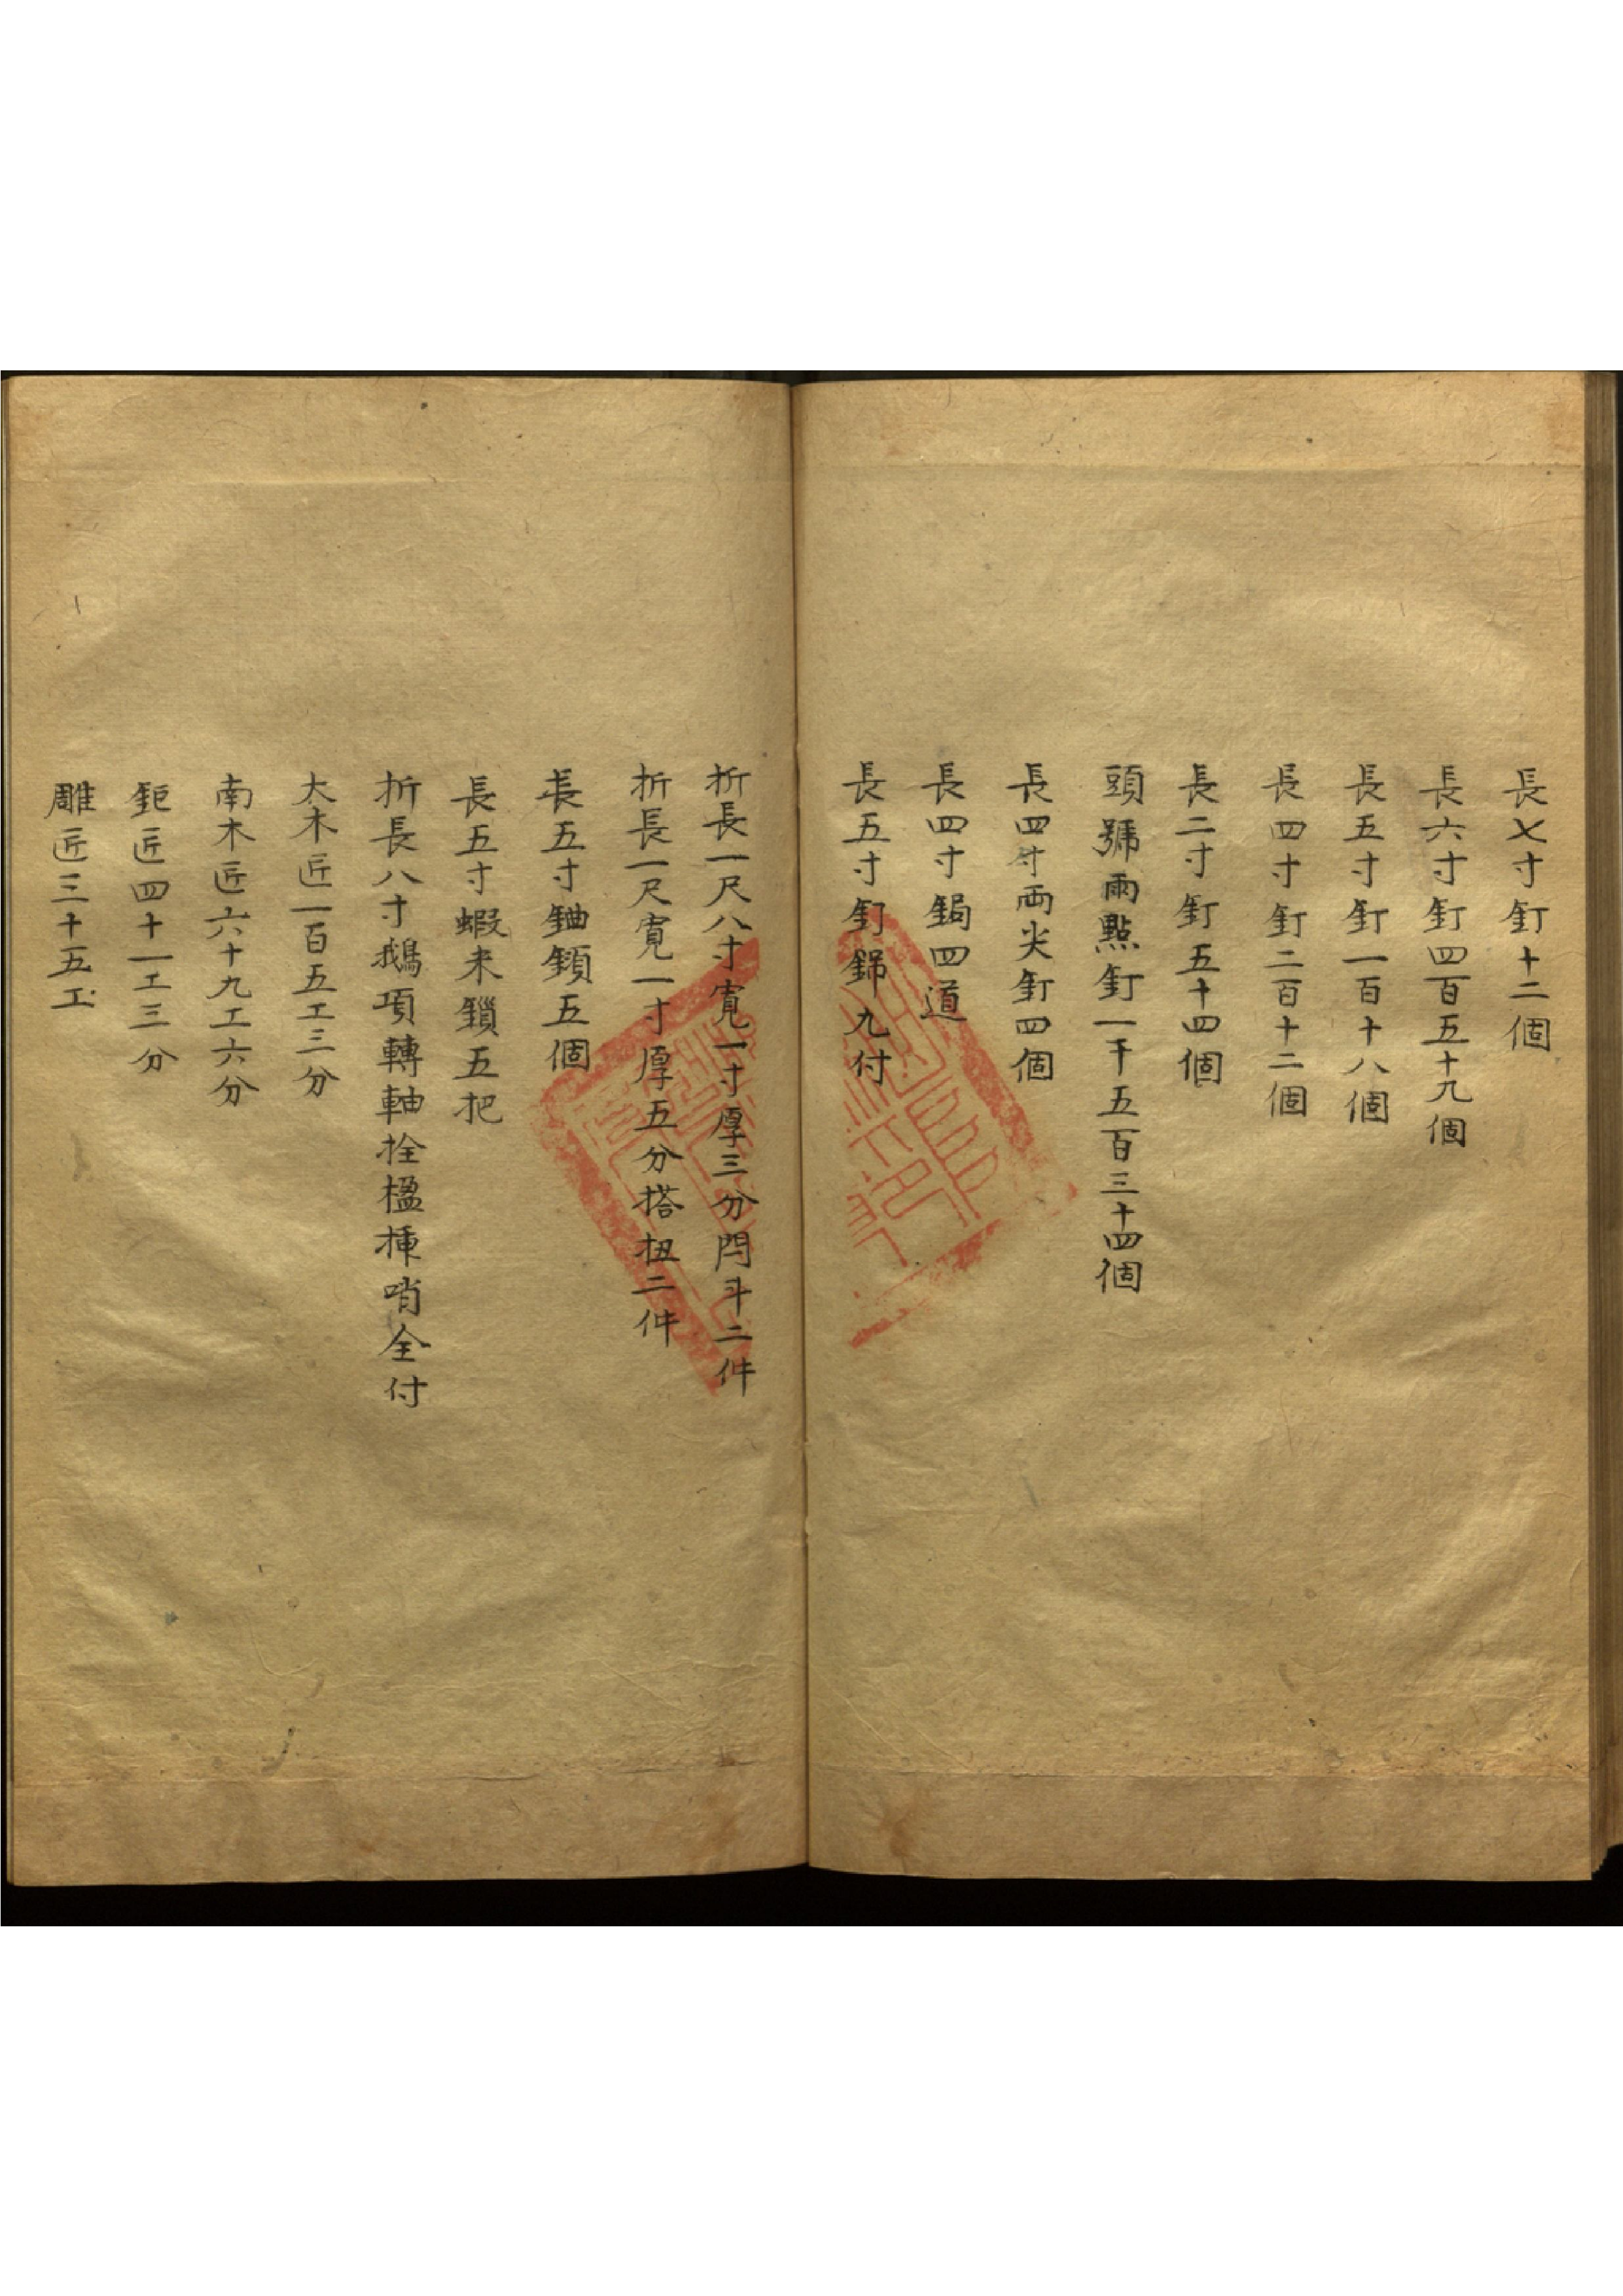 長七寸釘十二個
長六寸釘四百五十九個
長五寸釘一百十八個
長四寸釘二百十二個
長二寸釘五十四個
頭號雨點釘一千五百三十四個
長四寸両尖釘四個
長四寸鋦四道
長五寸釘錦九付
折長一尺八寸寬一寸厚三分閂斗二件
折長一尺寬一寸厚五分搭扭二件
長五寸鈾鐼五個
長五寸蝦米鎖五把
折長八寸鵝項轉軸拴楹揷哨全付
大木匠一百五工三分
南木匠六十九工六分
鉅匠四十一工三分
雕匠三十五工